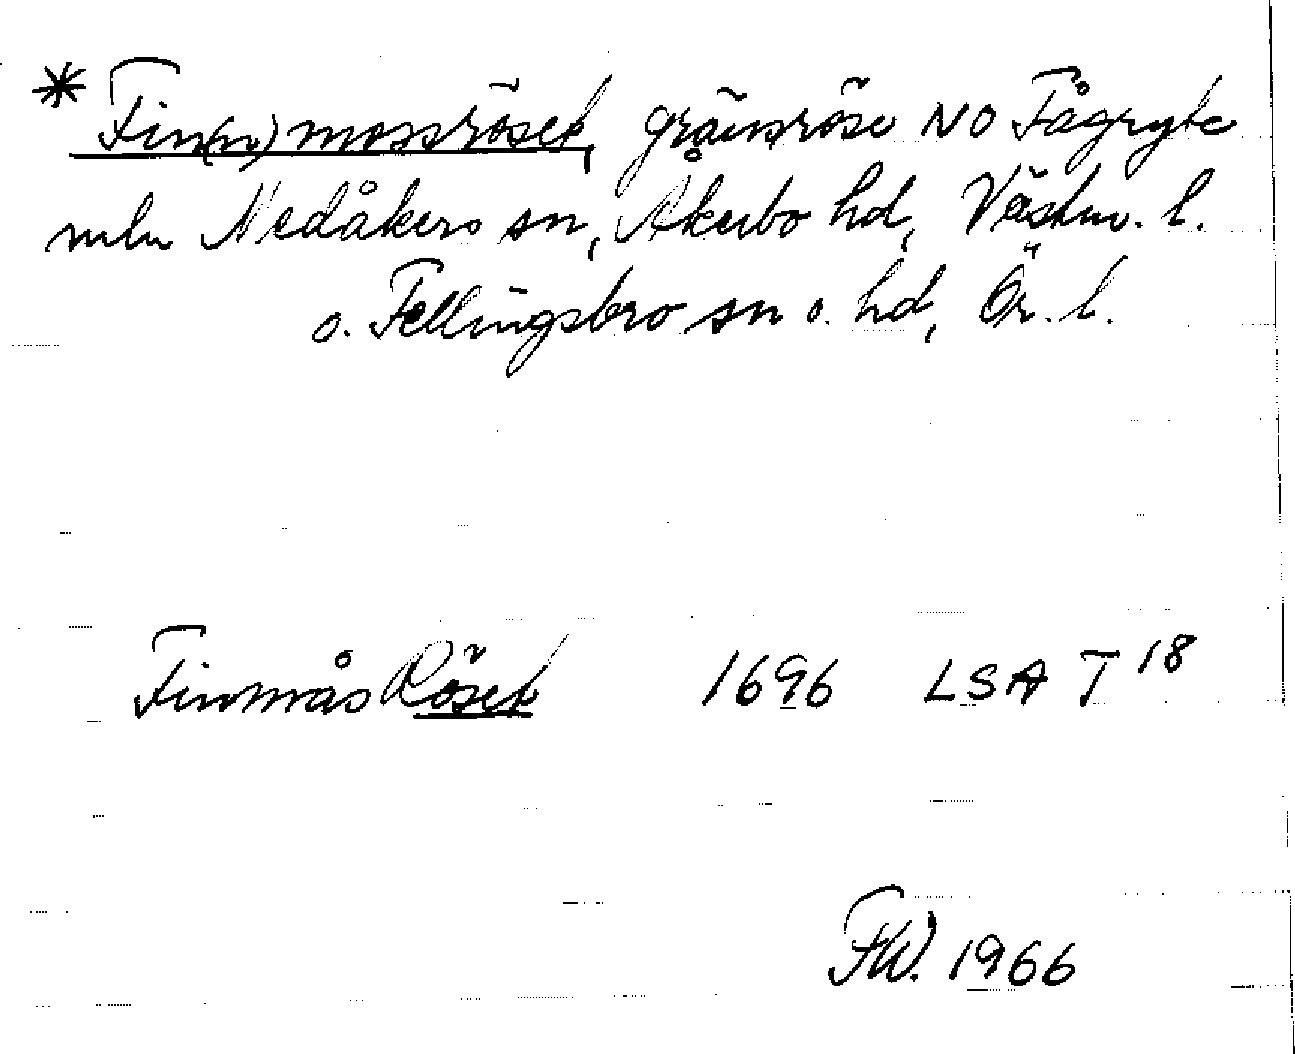 * Fin(n)mossröset, gränsröse NO Fågryte
mln Medåkers sn, Åkerbo hd, Västm. l.
o. Fellingsbro sn o. hd, Ör. l.
FinnmåsRöset 1696 LSA T 18
FW. 1966